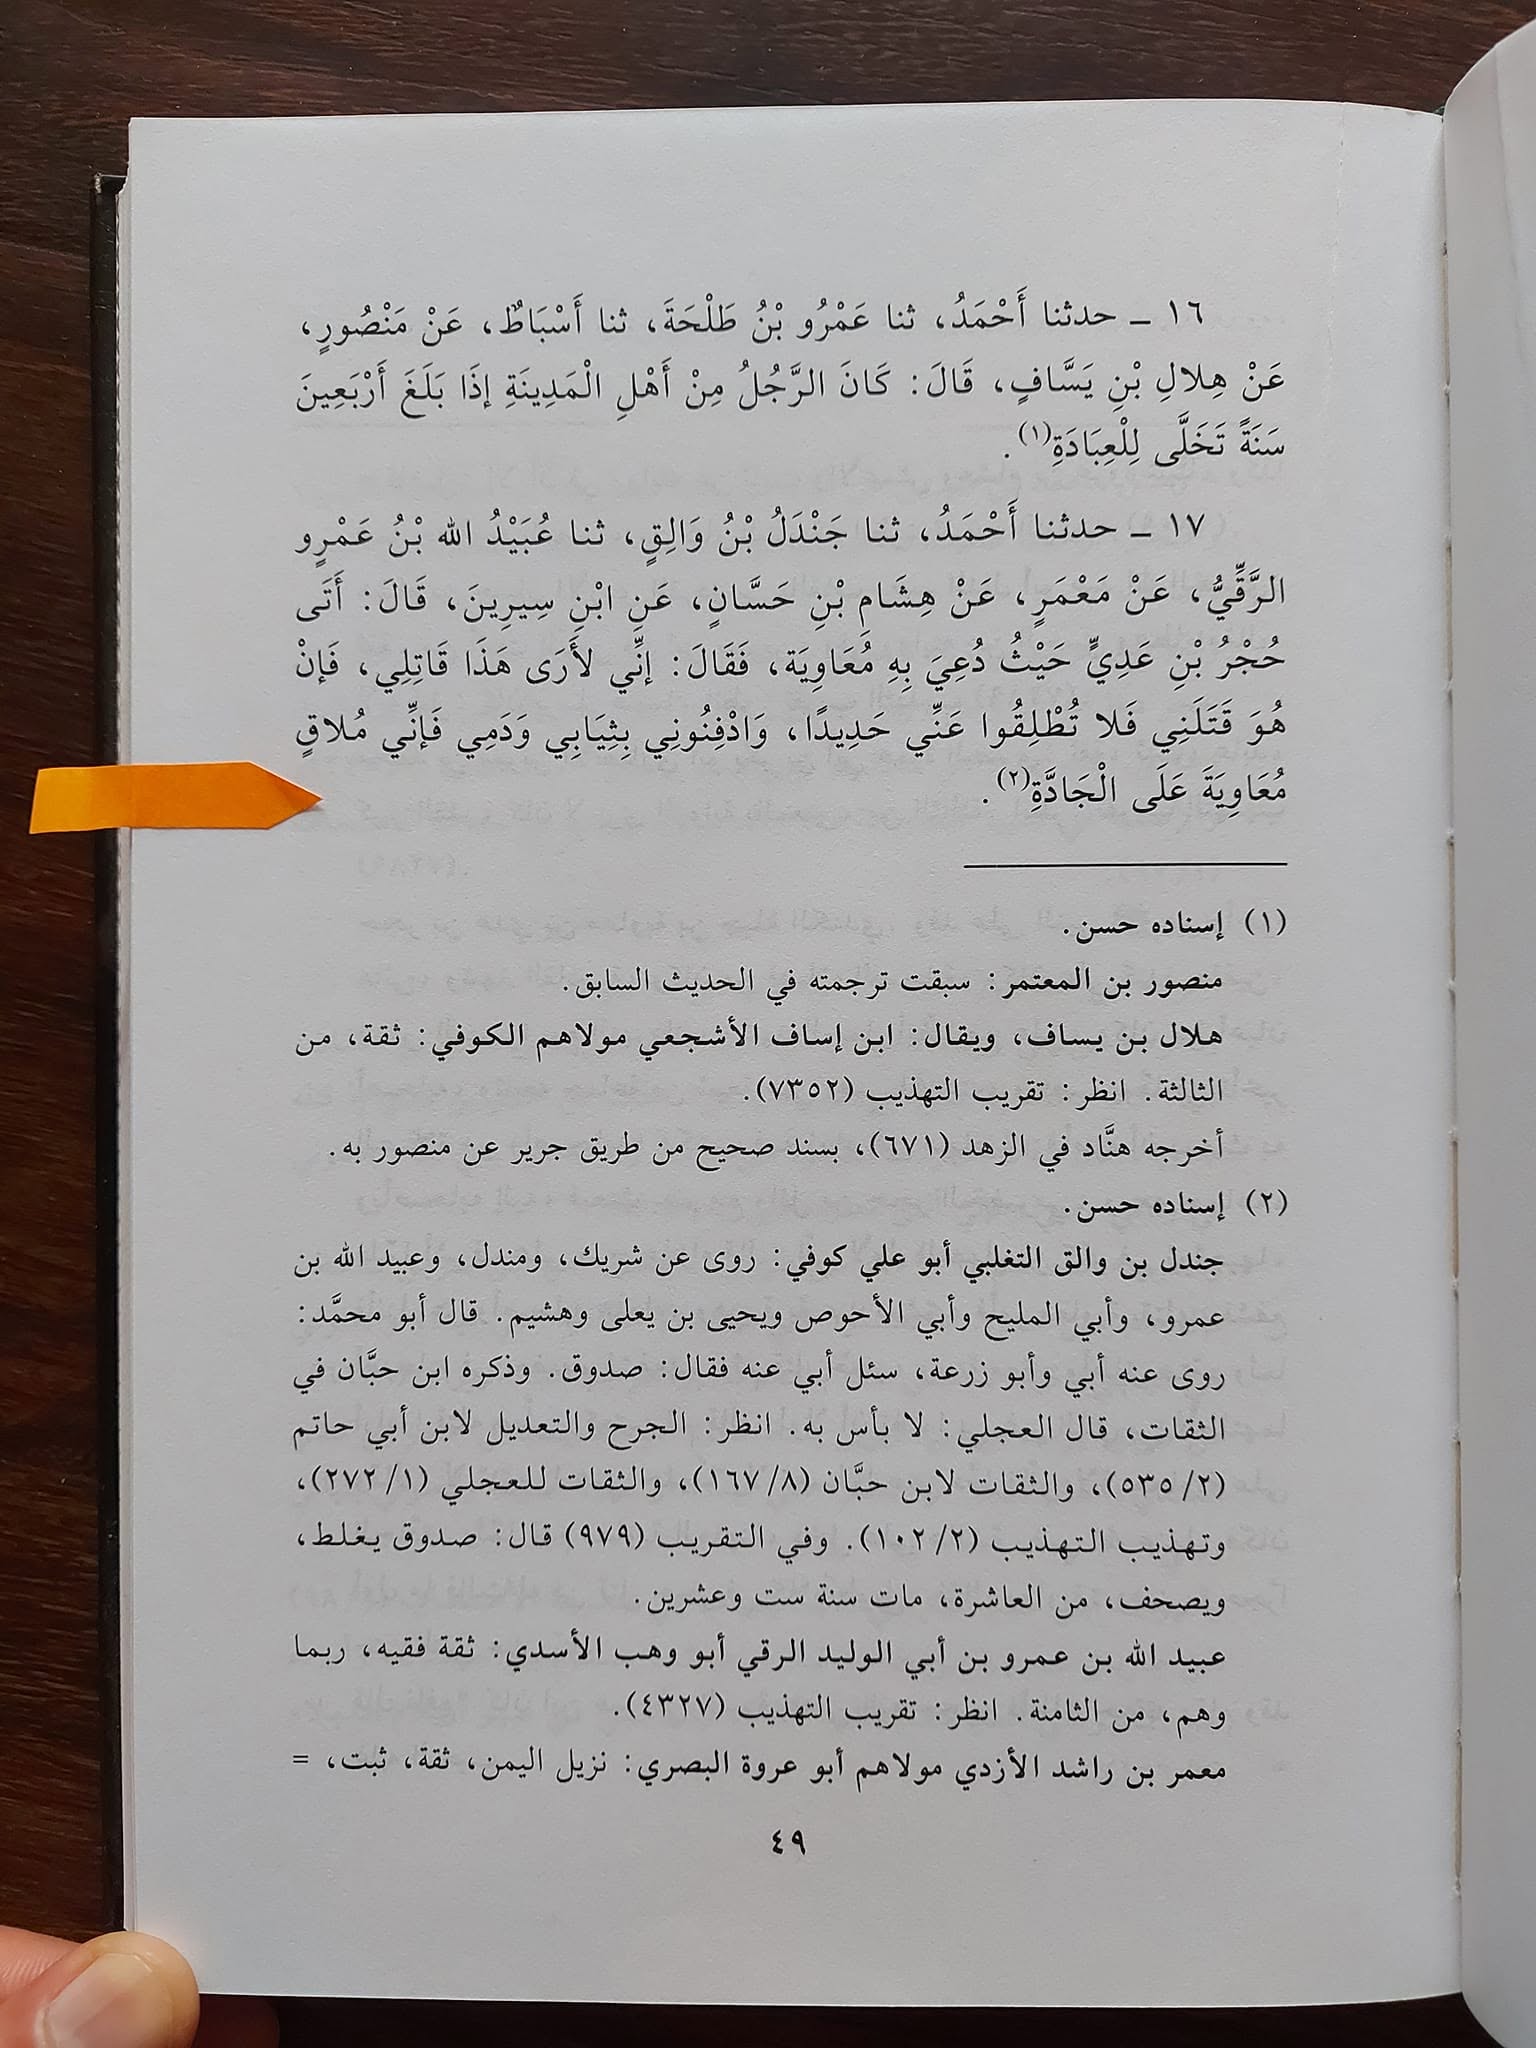 ١٦ ـ حدثنا أَحْمَدُ، ثنا عَمْرُو بْنُ طَلْحَةَ، ثنا أَسْبَاطٌ، عَنْ مَنْصُورٍ،
عَنْ هِلالِ بْنِ يَسَّافٍ، قَالَ: كَانَ الرَّجُلُ مِنْ أَهْلِ الْمَدِينَةِ إذَا بَلَغَ أَرْبَعِينَ
سَنَةً تَخَلَّى لِلْعِبَادَةِ(١).
١٧ ـ حدثنا أَحْمَدُ، ثنا جَنْدَلُ بْنُ وَالِقٍ، ثنا عُبَيْدُ الله بْنُ عَمْرٍو
الرَّقِّيُّ، عَنْ مَعْمَرٍ، عَنْ هِشَامِ بْنِ حَسَّانٍ، عَنِ ابْنِ سِيرِينَ، قَالَ: أَتَى
حُجْرُ بْنِ عَدِيٍّ حَيْثُ دُعِيَ بِهِ مُعَاوِيَة، فَقَالَ: إنِّي لأَرَى هَذَا قَاتِلِي، فَإنْ
هُوَ قَتَلَنِي فَلا تُطْلِقُوا عَنِّي حَدِيدًا، وَادْفِنُونِي بِثِيَابِي وَدَمِي فَإنِّي مُلاقٍ
مُعَاوِيَةَ عَلَى الْجَادَّةِ(٢).
(١) إسناده حسن.
منصور بن المعتمر: سبقت ترجمته في الحديث السابق.
هلال بن يساف، ويقال: ابن إساف الأشجعي مولاهم الكوفي: ثقة، من
الثالثة. انظر: تقريب التهذيب (٧٣٥٢).
أخرجه هنَّاد في الزهد (٦٧١)، بسند صحيح من طريق جرير عن منصور به.
(٢) إسناده حسن.
جندل بن والق التغلبي أبو علي كوفي: روى عن شريك، ومندل، وعبيد الله بن
عمرو، وأبي المليح وأبي الأحوص ويحيى بن يعلى وهشيم. قال أبو محمَّد:
روى عنه أبي وأبو زرعة، سئل أبي عنه فقال: صدوق. وذكره ابن حبَّان في
الثقات، قال العجلي: لا بأس به. انظر: الجرح والتعديل لابن أبي حاتم
(٢/ ٥٣٥)، والثقات لابن حبَّان (٨/ ١٦٧)، والثقات للعجلي (١/ ٢٧٢)،
وتهذيب التهذيب (٢/ ١٠٢). وفي التقريب (٩٧٩) قال: صدوق يغلط،
ويصحف، من العاشرة، مات سنة ست وعشرين.
عبيد الله بن عمرو بن أبي الوليد الرقي أبو وهب الأسدي: ثقة فقيه، ربما
وهم، من الثامنة. انظر: تقريب التهذيب (٤٣٢٧).
معمر بن راشد الأزدي مولاهم أبو عروة البصري: نزيل اليمن، ثقة، ثبت، =
٤٩